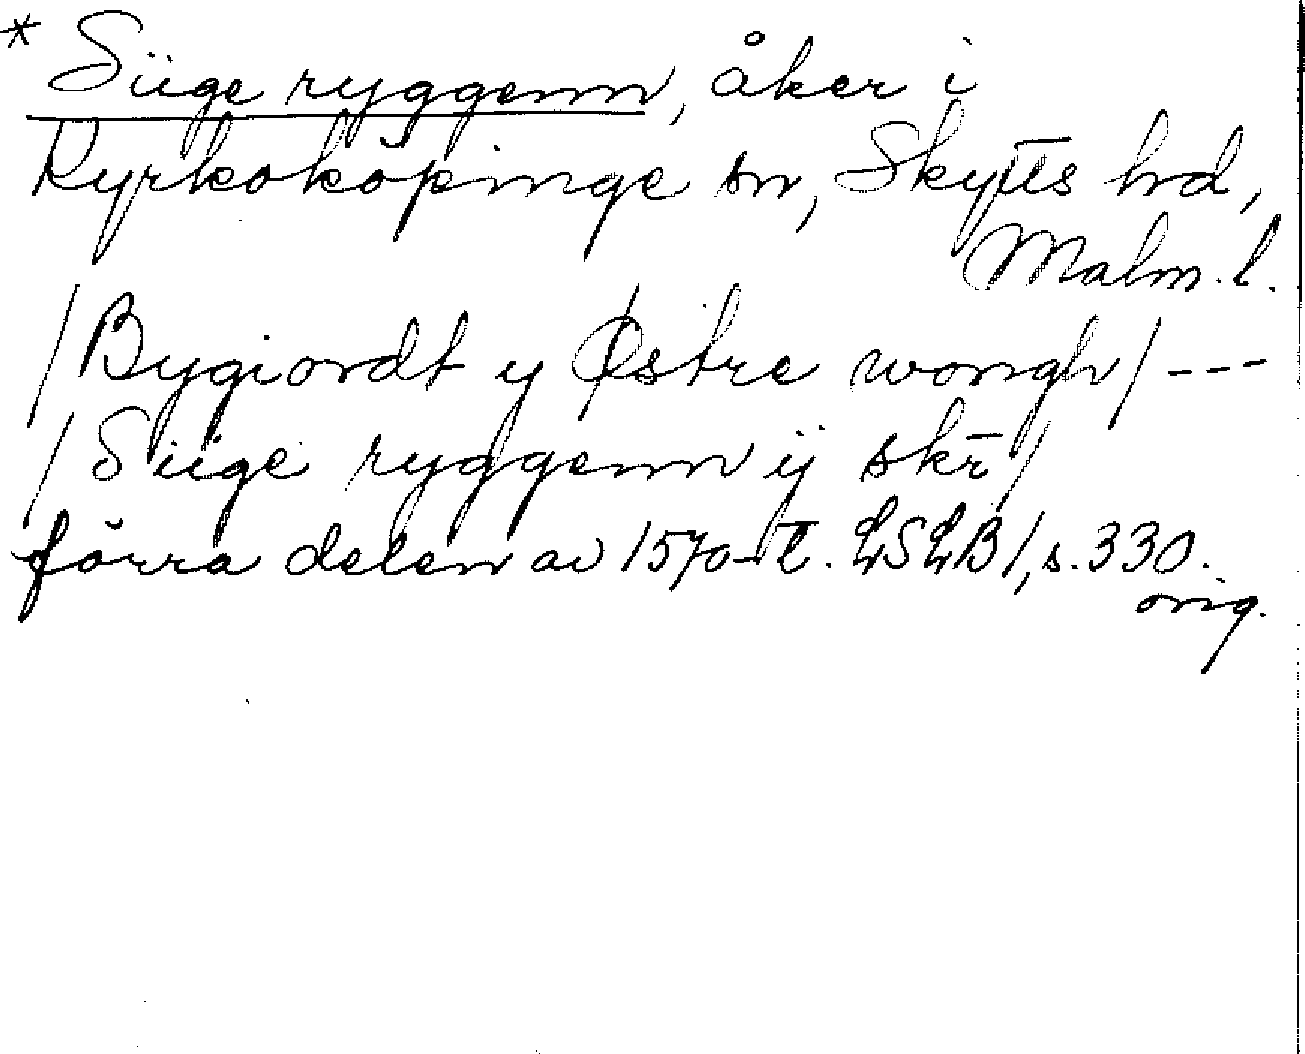 * Siige ryggenn, åker i
Kyrkoköpinge sn, Skytts hd,
Malm. l.
/Bygiordt y Østre wongh/ ---
/Siige ryggenn ij skr̄/
förra delen av 1570-t. LSLB1, s. 330.
orig.